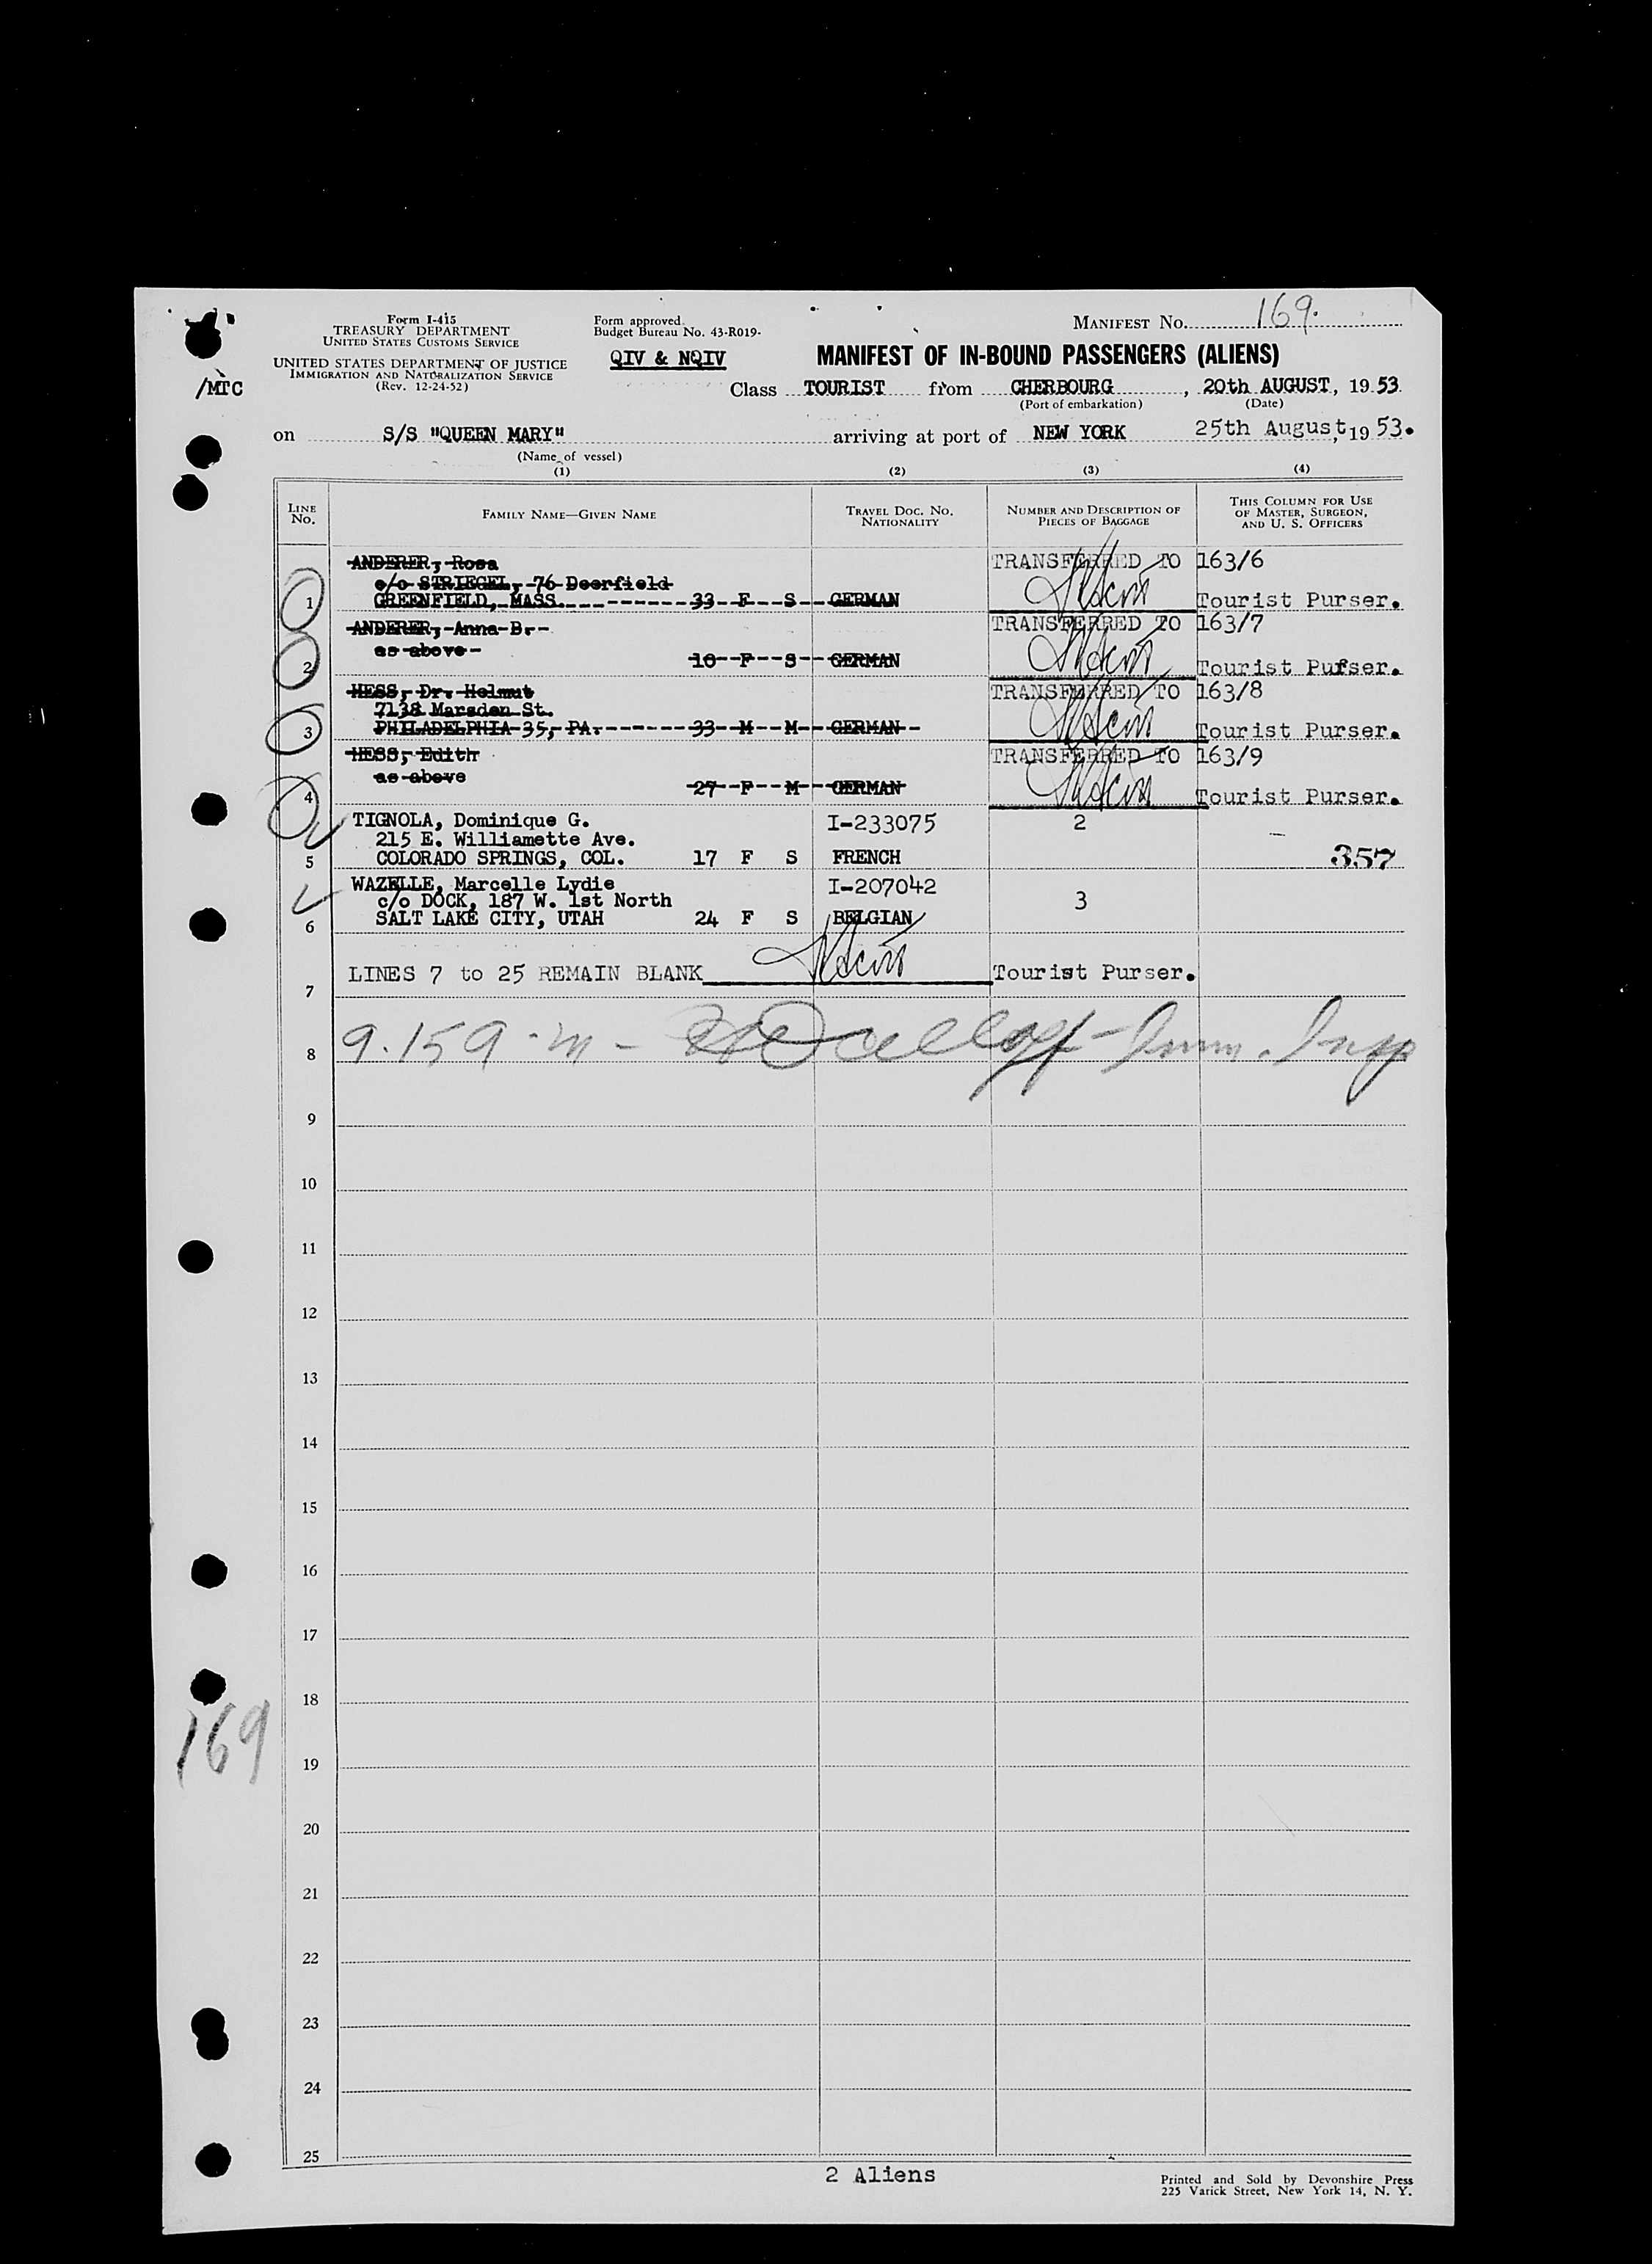 Form I-415
TREASURY DEPARTMENT
UNITED STATES CUSTOMS SERVICE
UNITED STATES DEPARTMENT OF JUSTICE
IMMIGRATION AND NATURALIZATION SERVICE
(Rev. 12-24-52)
/MTC
Form approved.
Budget Bureau No. 43-R019-
QIV & NQIV
MANIFEST No. 169.
MANIFEST OF IN-BOUND PASSENGERS (ALIENS)
Class TOURIST from CHERBOURG, 20th AUGUST, 1953.
(Port of embarkation) (Date)
on S/S "QUEEN MARY" arriving at port of NEW YORK 25th August, 1953.
(Name of vessel)
(1) (2) (3) (4)
LINE No. FAMILY NAME—GIVEN NAME TRAVEL DOC. NO. NATIONALITY NUMBER AND DESCRIPTION OF PIECES OF BAGGAGE THIS COLUMN FOR USE OF MASTER, SURGEON, AND U. S. OFFICERS
ANDERER, Rosa TRANSFERRED TO 163/6
c/o STRIEGEL, 76 Deerfield
1 GREENFIELD, MASS. 33 F S GERMAN Tourist Purser.
ANDERER, Anna B. TRANSFERRED TO 163/7
as above
2 10 F S GERMAN Tourist Purser.
HESS, Dr. Helmut TRANSFERRED TO 163/8
7138 Marsden St.
3 PHILADELPHIA 35, PA. 33 M M GERMAN Tourist Purser.
HESS, Edith TRANSFERRED TO 163/9
as above
4 27 F M GERMAN Tourist Purser.
TIGNOLA, Dominique G. I-233075 2
215 E. Williamette Ave.
5 COLORADO SPRINGS, COL. 17 F S FRENCH 357
WAZELLE, Marcelle Lydie I-207042 3
c/o DOCK, 187 W. 1st North
6 SALT LAKE CITY, UTAH 24 F S BELGIAN
LINES 7 to 25 REMAIN BLANK Tourist Purser.
7
8 9.159.m - Imm. Insp
9
10
11
12
13
14
15
16
17
18
169
19
20
21
22
23
24
25
2 Aliens
Printed and Sold by Devonshire Press
225 Varick Street, New York 14, N. Y.